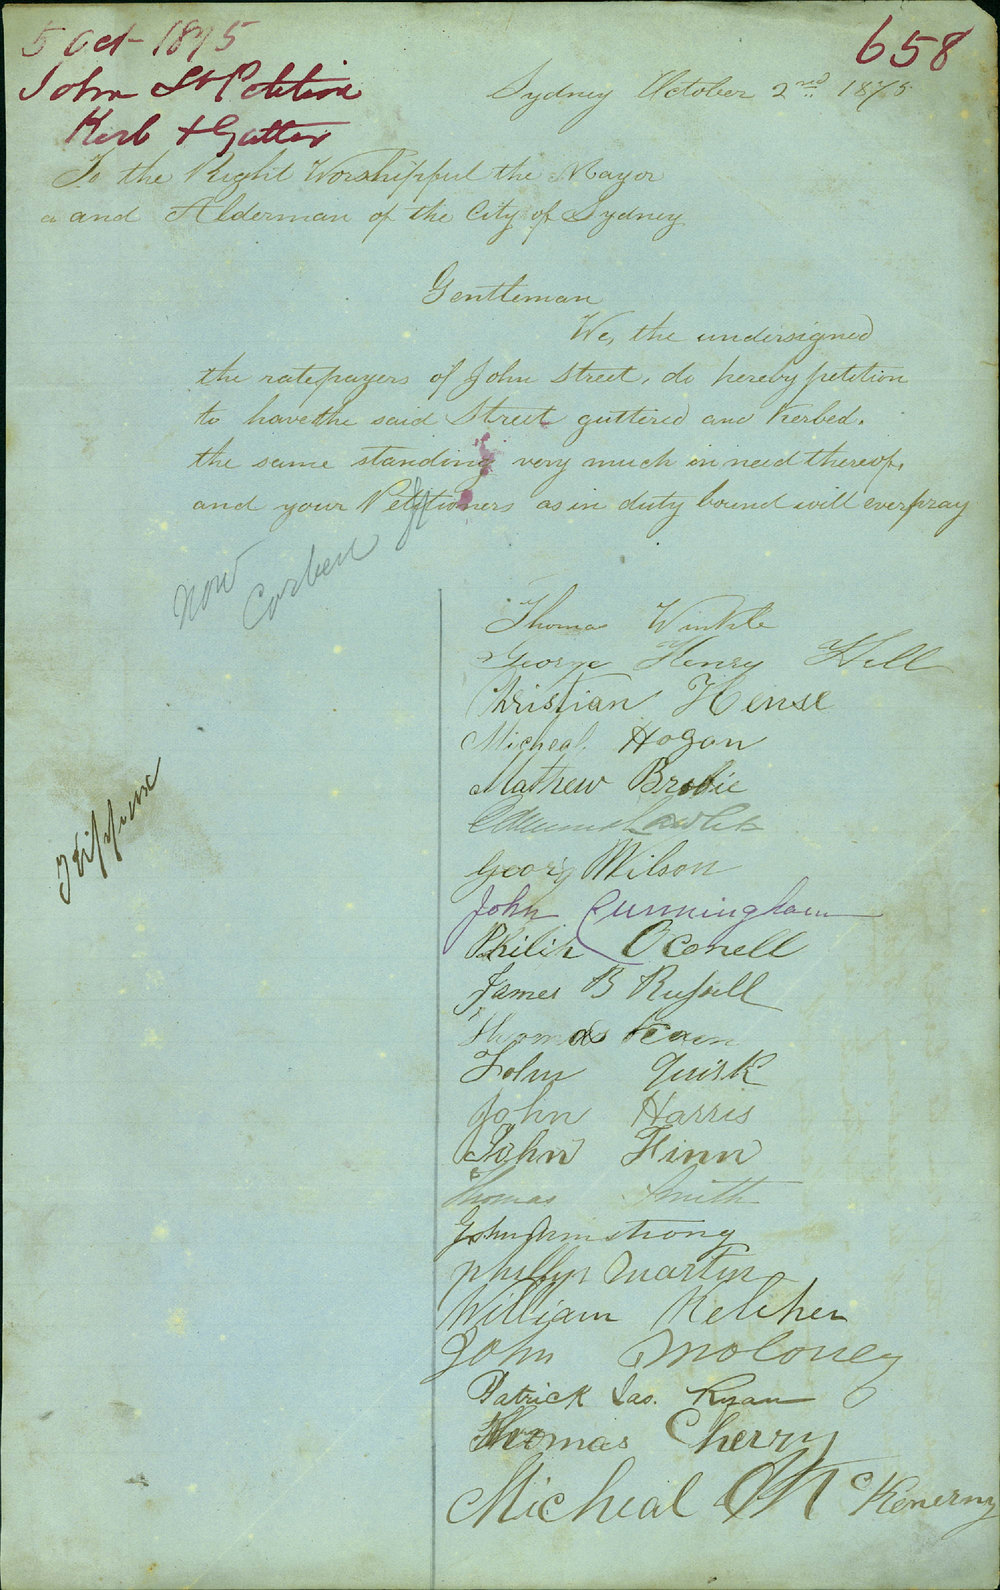 5 Oct 1875
658
John St Petition
Kerb & Gutter
Sydney October 2nd 1875
To the Right Worshipful the Mayor
and Alderman of the City of Sydney
Gentleman
We, the undersigned
the ratepayers of John Street, do hereby petition
to have the said Street guttered and Kerbed.
the same standing very much in need thereof,
and your Petitioners as in duty bound will ever pray
Now Corben St
Thomas Winkle
George Henry Hill
Christian Hense
Micheal Hogan
Mathew Brodie
Georg Wilson
John Cunningham
Philip OConell
James B Russell
Thomas
John Quirk
John Harris
John Finn
Thomas Smith
John Armstrong
Phillip Martin
William Kelcher
John Moloney
Patrick Jas. Ryan
Thomas Cherry
Micheal McKenerny